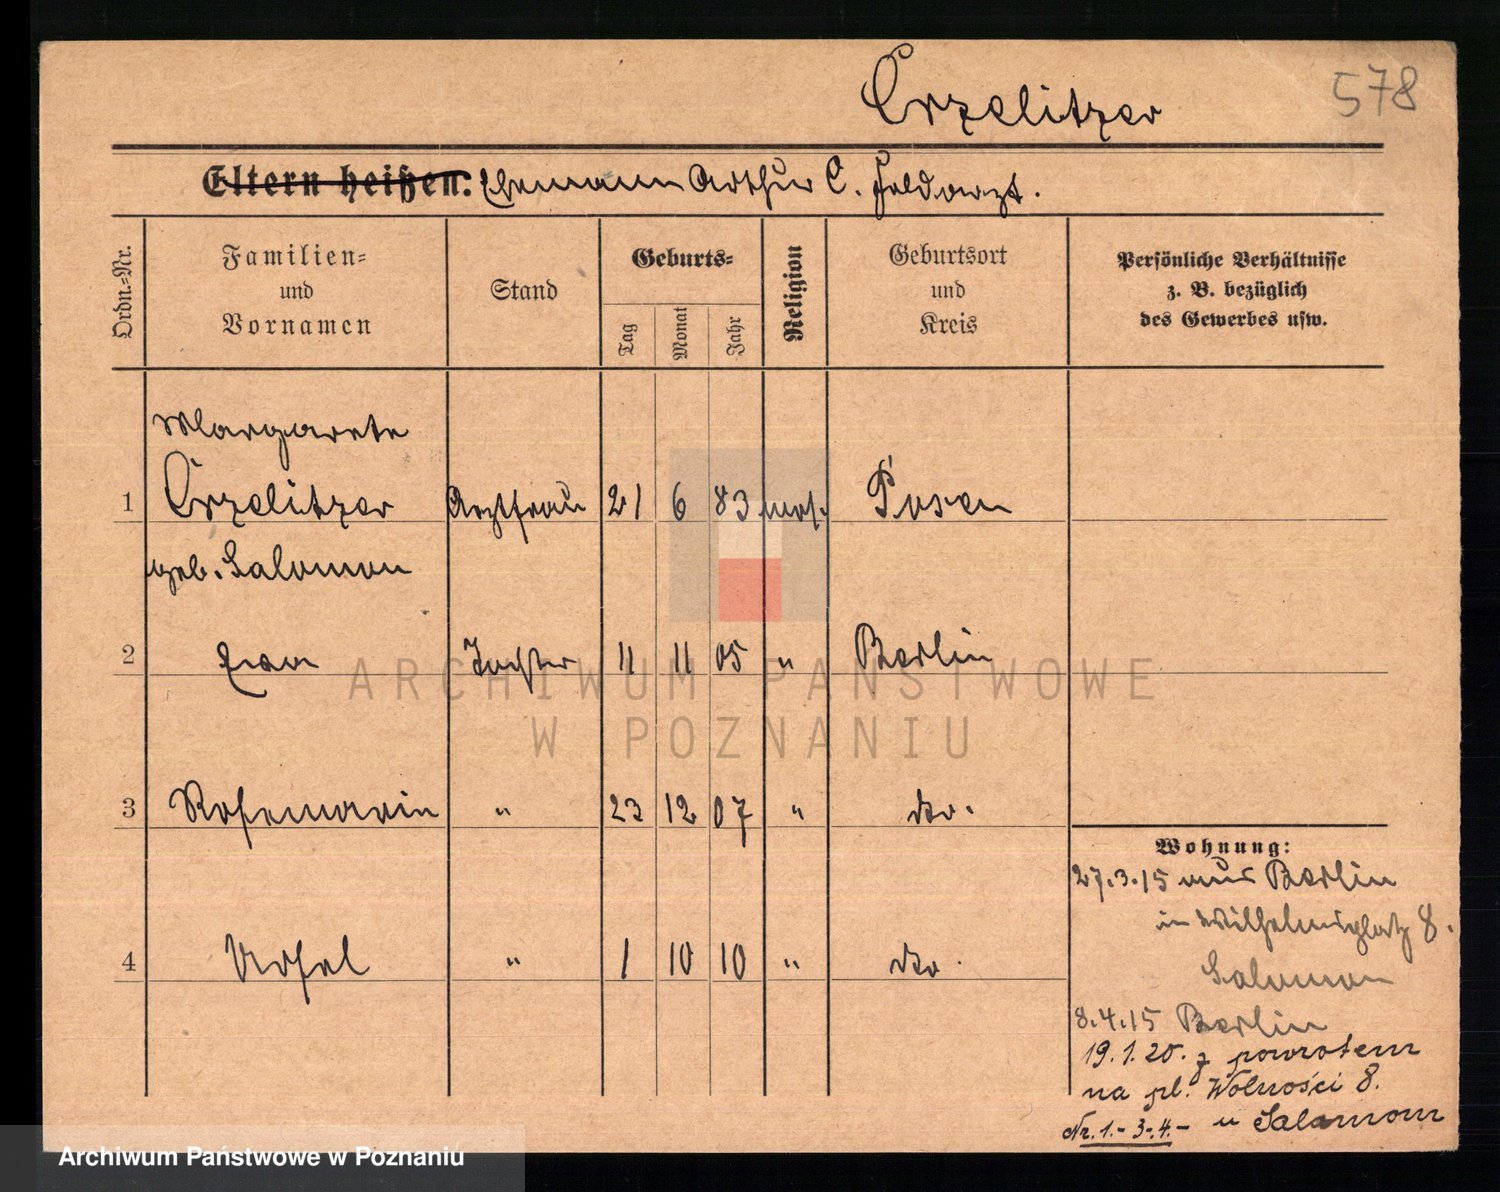 Czzelitzer 578
Eltern heißen: Ehemann Arthur C. Feldarzt.
Ordn.-Nr.
Familien-
und
Vornamen
Stand
Geburts-
Tag
Monat
Jahr
Religion
Geburtsort
und
Kreis
Persönliche Verhältnisse
z. B. bezüglich
des Gewerbes usw.
Margarete
1 Czzelitzer Arztfrau 21 6 83 mos. Posen
geb. Salomon
2 Tochter 11 11 05 " Berlin
3 Rosemarin " 23 12 07 " do.
4 Ursel " 1 10 10 " do.
Wohnung:
27.3.15 aus Berlin
in Wilhelmsplatz 8.
Salomon
8.4.15 Berlin
19.1.20. z powrotem
na pl. Wolności 8.
Nr. 1.- 3.4.- u Salamom
ARCHIWUM PAŃSTWOWE
W POZNANIU
Archiwum Państwowe w Poznaniu